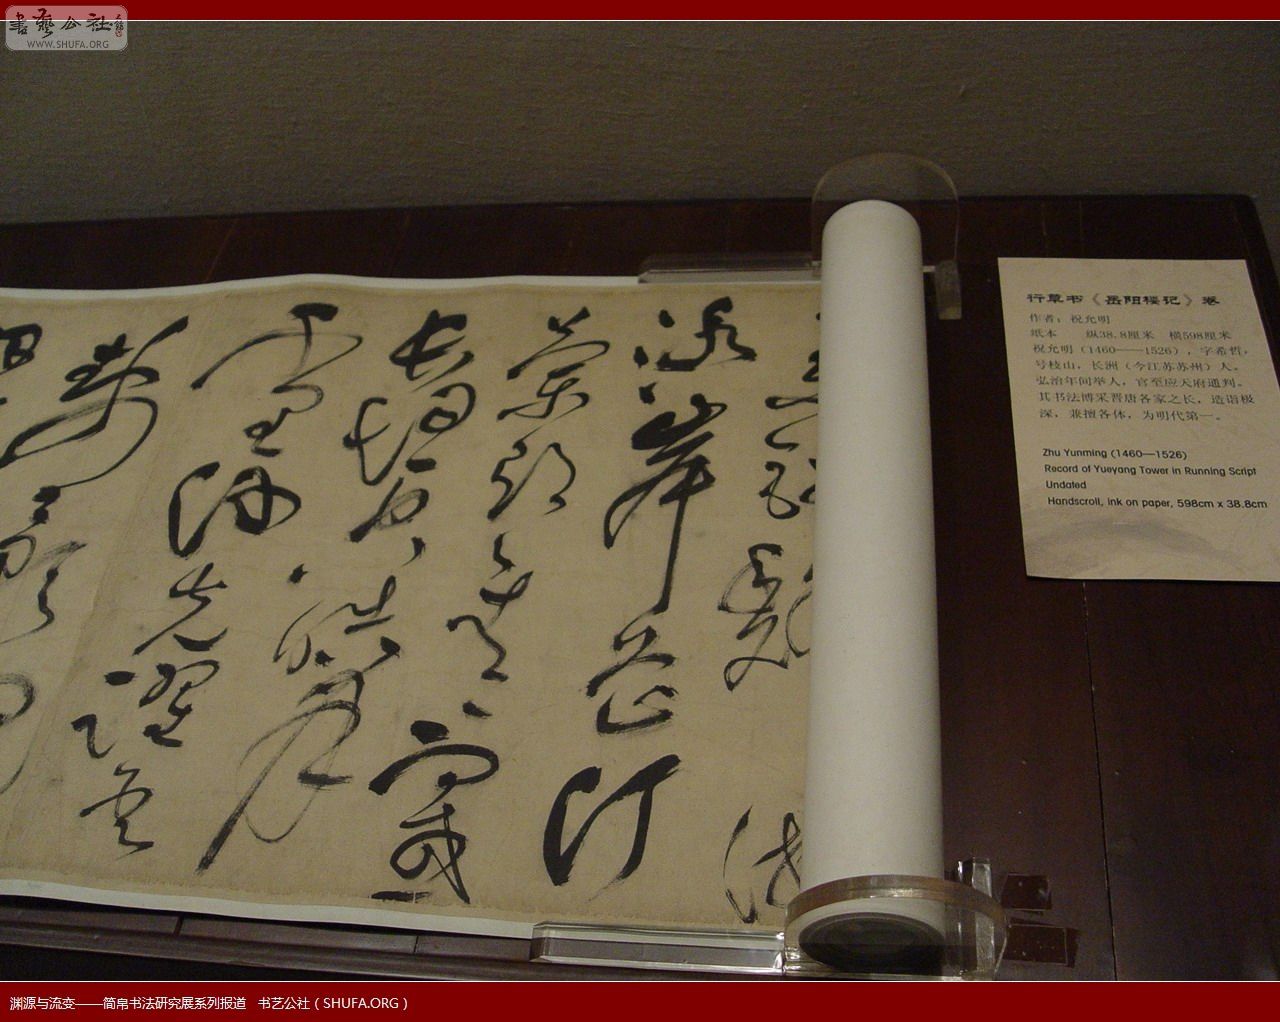 書藝公社
WWW.SHUFA.ORG
泳岸芷汀
兰郁々青々而或
长烟一空皓月
千里浮光耀金
静影
行草书《岳阳楼记》卷
作者：祝允明
纸本　纵38.8厘米　横598厘米
祝允明（1460——1526），字希哲，
号枝山，长洲（今江苏苏州）人。
弘治年间举人，官至应天府通判。
其书法博采晋唐各家之长，造诣极
深，兼擅各体，为明代第一。
Zhu Yunming (1460—1526)
Record of Yueyang Tower in Running Script
Undated
Handscroll, ink on paper, 598cm x 38.8cm
渊源与流变——简帛书法研究展系列报道　书艺公社（SHUFA.ORG）